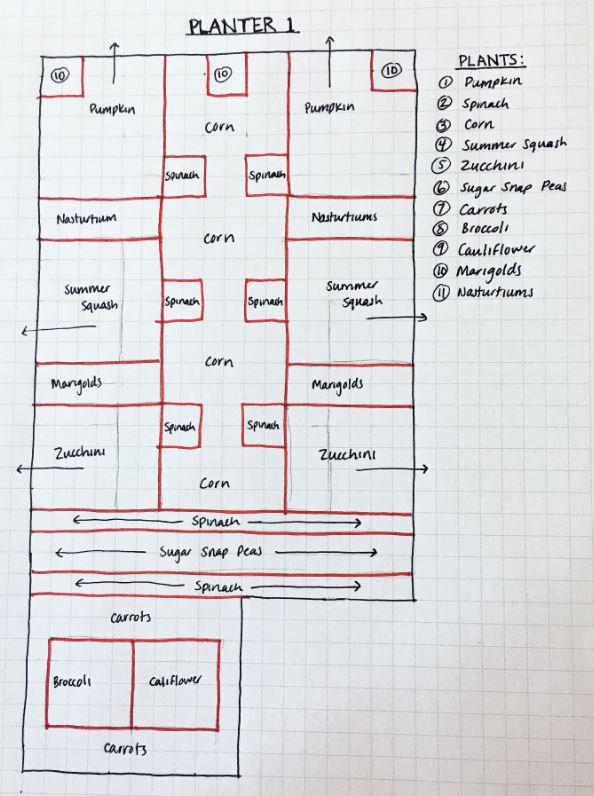 PLANTER 1
PLANTS:
① Pumpkin
② Spinach
③ Corn
④ Summer Squash
⑤ Zucchini
⑥ Sugar Snap Peas
⑦ Carrots
⑧ Broccoli
⑨ Cauliflower
⑩ Marigolds
⑪ Nasturtiums
⑩ ⑩ ⑩
Pumpkin Corn Pumpkin
Spinach Spinach
Nasturtium Corn Nasturtiums
Summer
Squash
Spinach Spinach
Summer
Squash
Corn
Marigolds Marigolds
Spinach Spinach
Zucchini Zucchini
Corn
Spinach
Sugar Snap Peas
Spinach
Carrots
Broccoli Califlower
Carrots